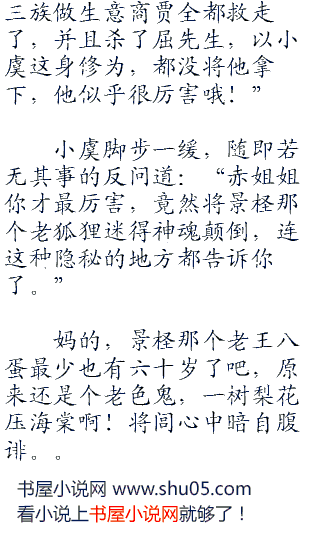 三族做生意商贾全都救走
了，并且杀了屈先生，以小
虞这身修为，都没将他拿
下，他似乎很厉害哦！”
小虞脚步一缓，随即若
无其事的反问道：“赤姐姐
你才最厉害，竟然将景柽那
个老狐狸迷得神魂颠倒，连
这种隐秘的地方都告诉你
了。”
妈的，景柽那个老王八
蛋最少也有六十岁了吧，原
来还是个老色鬼，一树梨花
压海棠啊！将闾心中暗自腹
诽。。
书屋小说网 www.shu05.com
看小说上书屋小说网就够了！